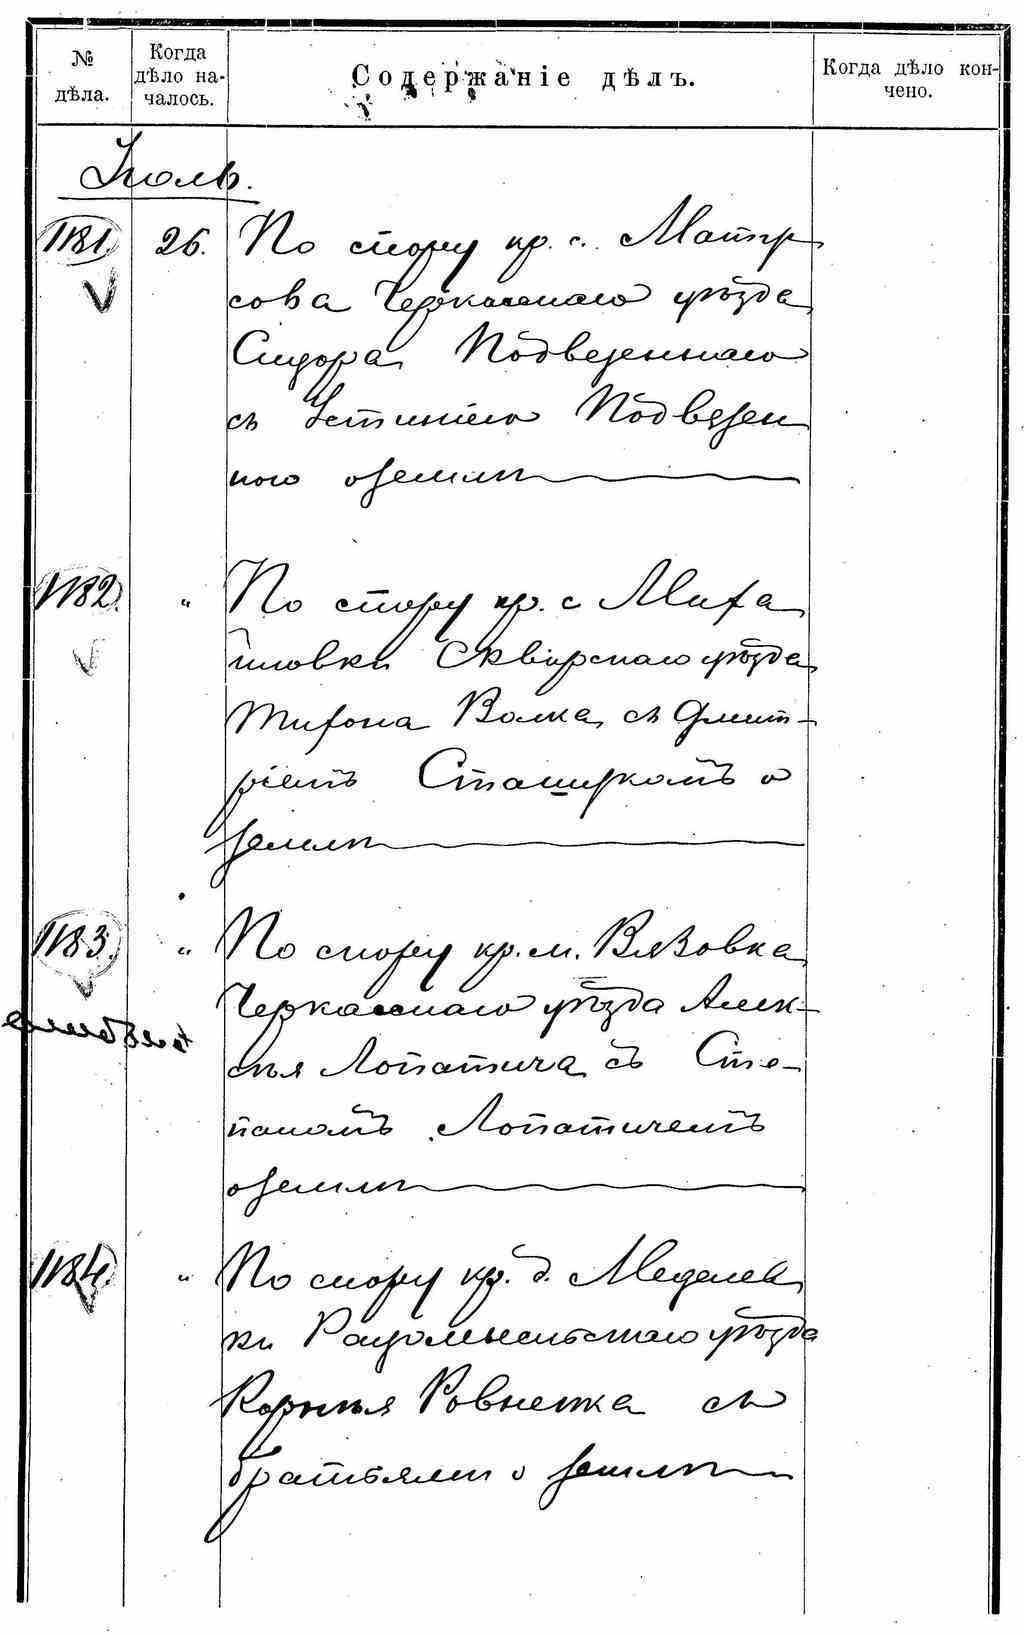 № дѣла.
Когда дѣло началось.
Содержаніе дѣлъ.
Когда дѣло кончено.
Іюль.
1181. 26. По спору кр. с. Матѵ
сова Черкасскаго уѣзда
Сидора Подвезеннаго
съ Устиніею Подвезен
ного о землѣ
1182. " По спору кр. с Миха
йловки Сквирскаго уѣзда
Тифона Волка съ Дмит-
ріемъ Сташукомъ о
землѣ
1183. " По спору кр. м. Вязовка
Черкасскаго уѣзда Алек-
сѣя Лопатича съ Сте-
паномъ Лопатичемъ
о землѣ
1184. " По спору кр. д. Меделев
ки Радомысльскаго уѣзда
Корнѣя Ровнепка съ
братьями о землѣ